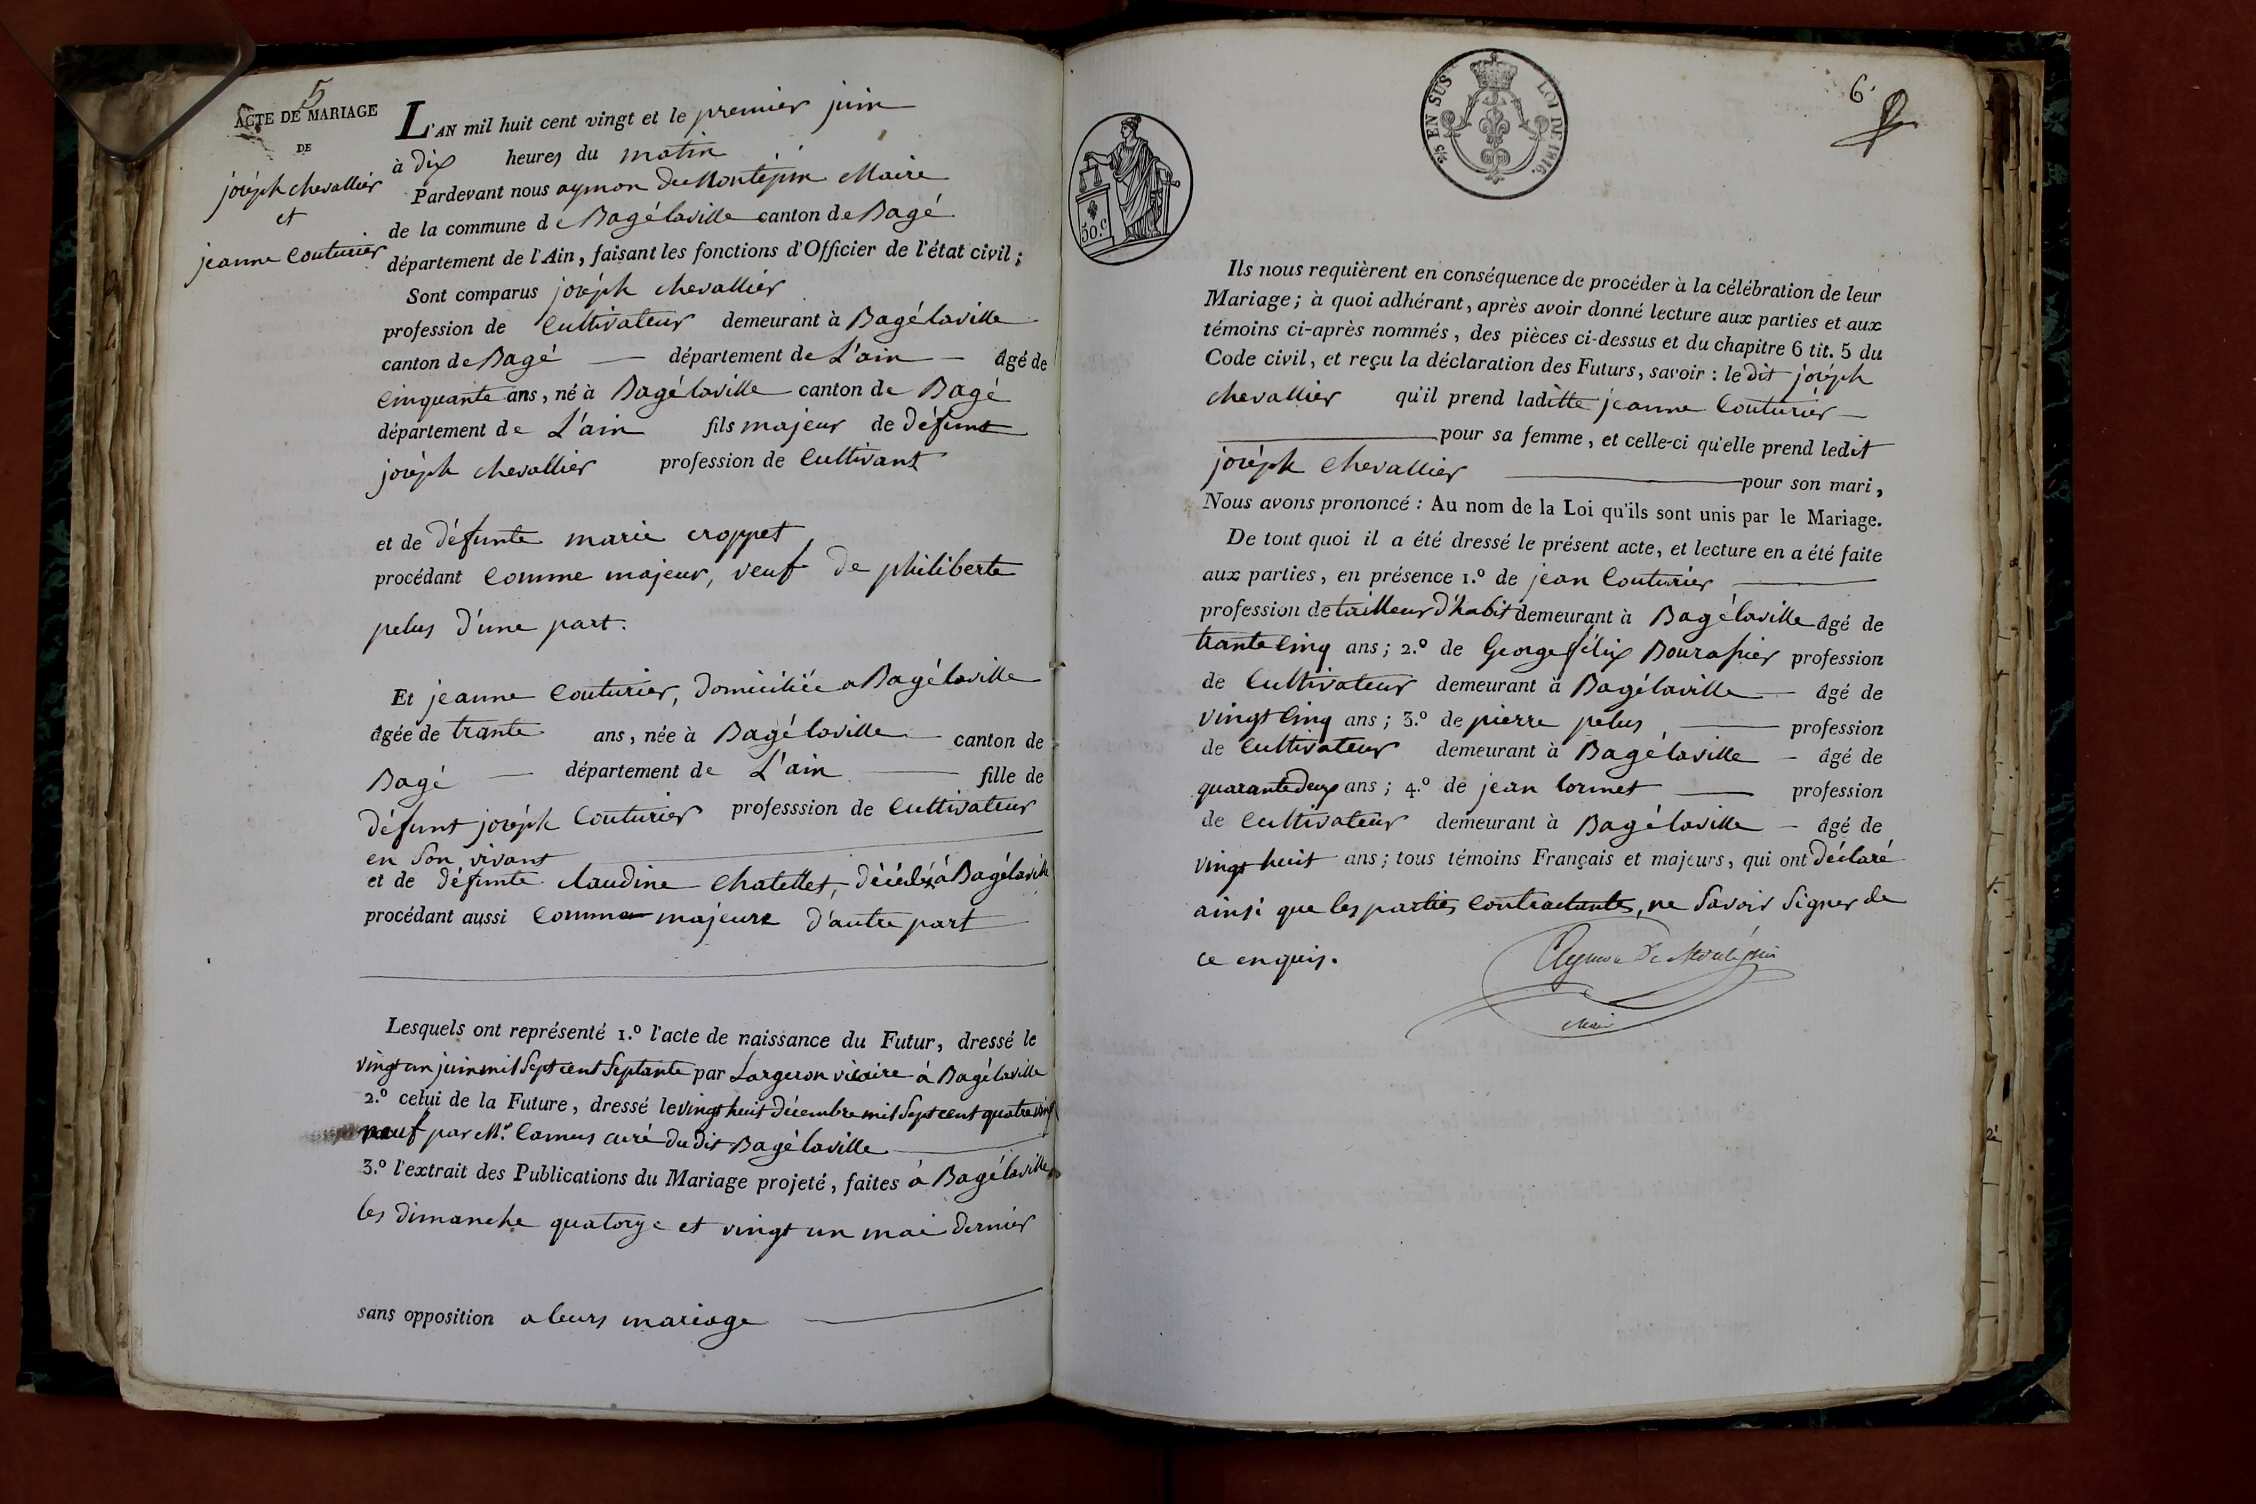 5
ACTE DE MARIAGE
DE
joséph chevallier
et
jeanne Couturier
L'AN mil huit cent vingt et le premier juin
à dix heures du matin
Pardevant nous aymon de Montépin Maire
de la commune de Bagélaville canton de Bagé
département de l'Ain, faisant les fonctions d'Officier de l'état civil;
Sont comparus joséph chevallier
profession de Cultivateur demeurant à Bagélaville
canton de Bagé département de L'ain âgé de
Cinquante ans, né à Bagélaville canton de Bagé
département de L'ain fils majeur de défunt
joséph chevallier profession de Cultivant
et de défunte marie croppet
procédant Comme majeur, veuf de philiberte
pelus d'une part.
Et jeanne Couturier, domiciliée a Bagélaville
âgée de trante ans, née à Bagélaville canton de
Bagé département de L'ain fille de
défunt joséph Couturier professsion de Cultivateur
en Son vivant
et de défunte Claudine Chatellet, décédés à Bagélaville
procédant aussi Comme majeure d'autre part
Lesquels ont représenté 1.º l'acte de naissance du Futur, dressé le
vingt un juin mil Sept cent Septante par Largeron vicaire à Bagélaville
2.º celui de la Future, dressé le vingt huit décembre mil Sept cent quatre vingt
neuf par Mr. Camus curé du dit Bagélaville
3.º l'extrait des Publications du Mariage projeté, faites à Bagélaville
les dimanche quatorze et vingt un mai dernier
sans opposition a leurs mariage
50.c
2/5 EN SUS LOI DE 1816.
6.
Ils nous requièrent en conséquence de procéder à la célébration de leur
Mariage; à quoi adhérant, après avoir donné lecture aux parties et aux
témoins ci-après nommés, des pièces ci-dessus et du chapitre 6 tit. 5 du
Code civil, et reçu la déclaration des Futurs, savoir: le dit joséph
chevallier qu'il prend laditte jeanne Couturier
pour sa femme, et celle-ci qu'elle prend ledit
joséph Chevallier pour son mari,
Nous avons prononcé: Au nom de la Loi qu'ils sont unis par le Mariage.
De tout quoi il a été dressé le présent acte, et lecture en a été faite
aux parties, en présence 1.º de jean Couturier
profession de tailleur d'habit demeurant à Bagélaville âgé de
trante Cinq ans; 2.º de George félix profession
de Cultivateur demeurant à Bagélaville âgé de
vingt Cinq ans; 3.º de pierre pelus profession
de Cultivateur demeurant à Bagélaville âgé de
quarante deux ans; 4.º de jean Cormet profession
de Cultivateur demeurant à Bagélaville âgé de
vingt huit ans; tous témoins Français et majeurs, qui ont déclaré
ainsi que les parties Contractantes, ne Savoir Signer de
ce enquis.
Aymon De Montépin
Maire